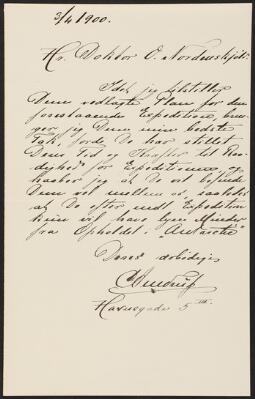 3/4 1900.
Hr. Doktor O. Nordenskjöld.
Idet jeg tilstiller
Dem vedlagte Plan for den
forestaaende Expedition, brin-
ger jeg Dem min bedste
Tak, fordi De har stillet
Deres Tid og Kræfter til Raa-
dighed for Expeditionen, og
haaber jeg at De vil befinde
Dem vel mellem os, saaledes
at De efter endt Expedition
kun vil have lyse Minder
fra Opholdet i "Antarctic"
Deres ærbødige
Amdrup
Havnegade 5